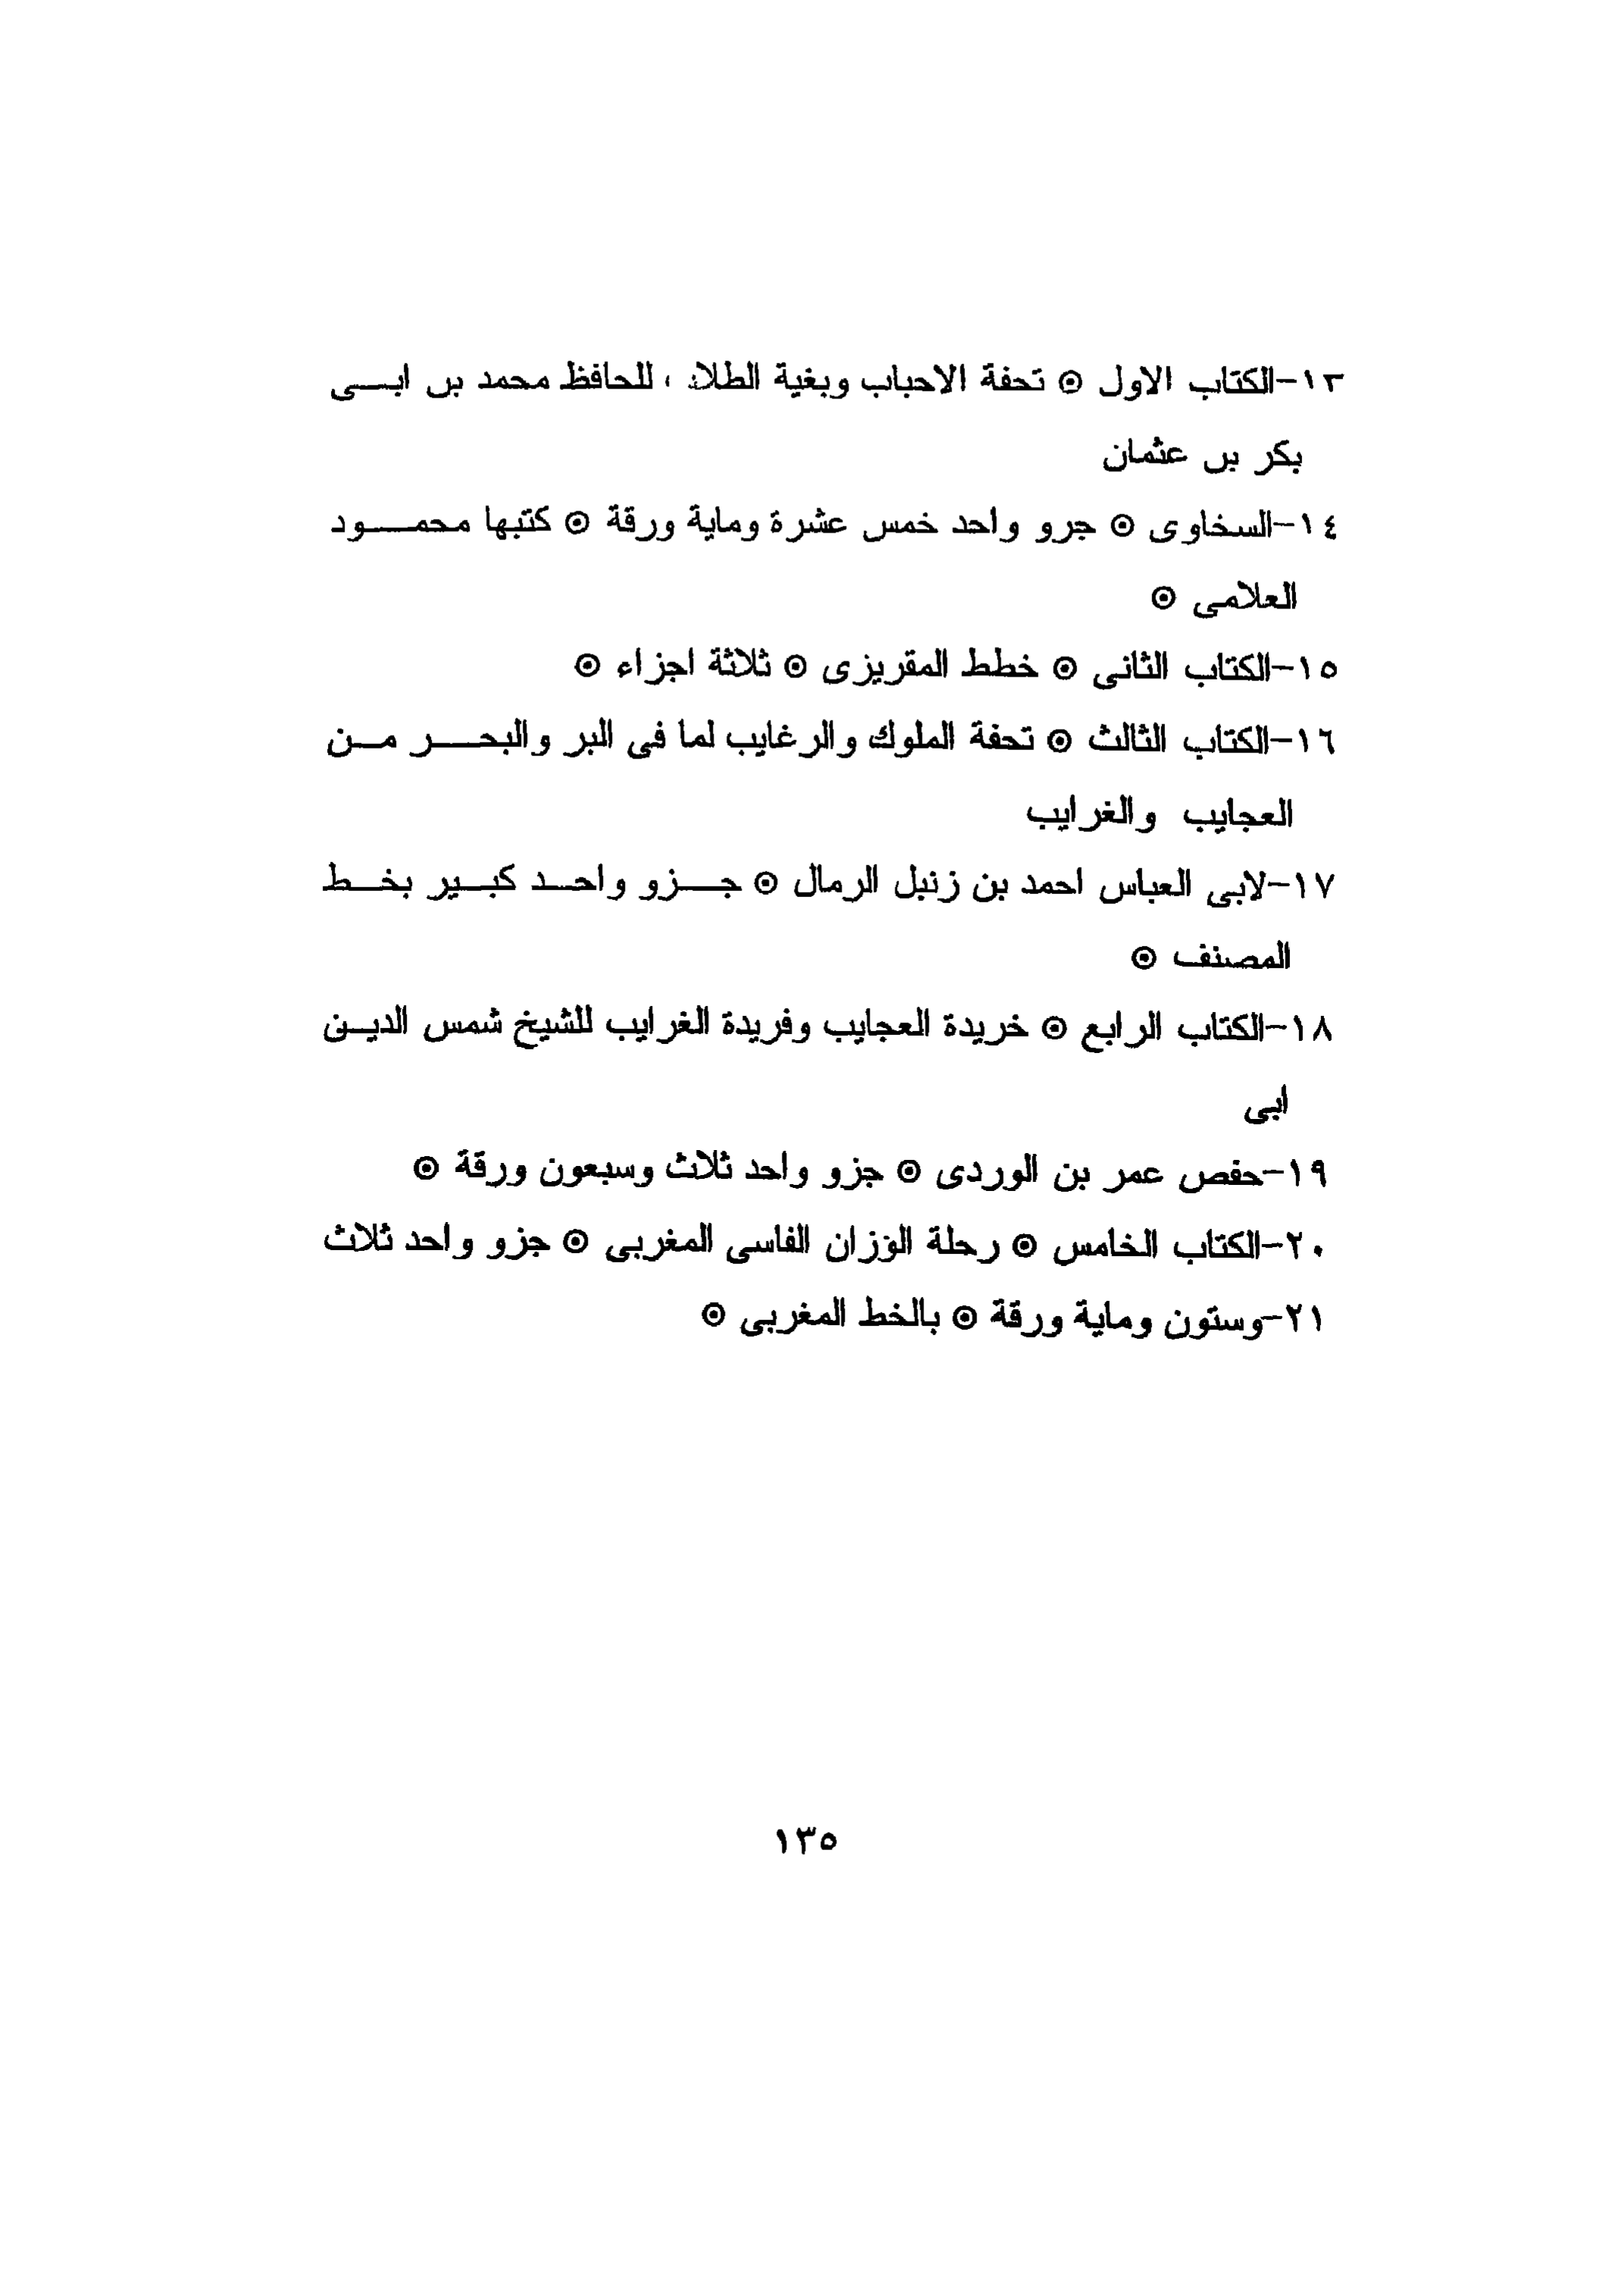 ١٣-الكتاب الاول ⊙ تحفة الاحباب وبغية الطلاب ، للحافظ محمد بن ابى
بكر بن عثمان
١٤-السخاوى ⊙ جرو واحد خمس عشرة وماية ورقة ⊙ كتبها محمود
العلامى ⊙
١٥-الكتاب الثانى ⊙ خطط المقريزى ⊙ ثلاثة اجزاء ⊙
١٦-الكتاب الثالث ⊙ تحفة الملوك والرغايب لما فى البر والبحر من
العجايب والغرايب
١٧-لابى العباس احمد بن زنبل الرمال ⊙ جزو واحد كبير بخط
المصنف ⊙
١٨-الكتاب الرابع ⊙ خريدة العجايب وفريدة الغرايب للشيخ شمس الدين
ابى
١٩-حفص عمر بن الوردى ⊙ جزو واحد ثلاث وسبعون ورقة ⊙
٢٠-الكتاب الخامس ⊙ رحلة الوزان الفاسى المغربى ⊙ جزو واحد ثلاث
٢١-وستون وماية ورقة ⊙ بالخط المغربى ⊙
١٣٥